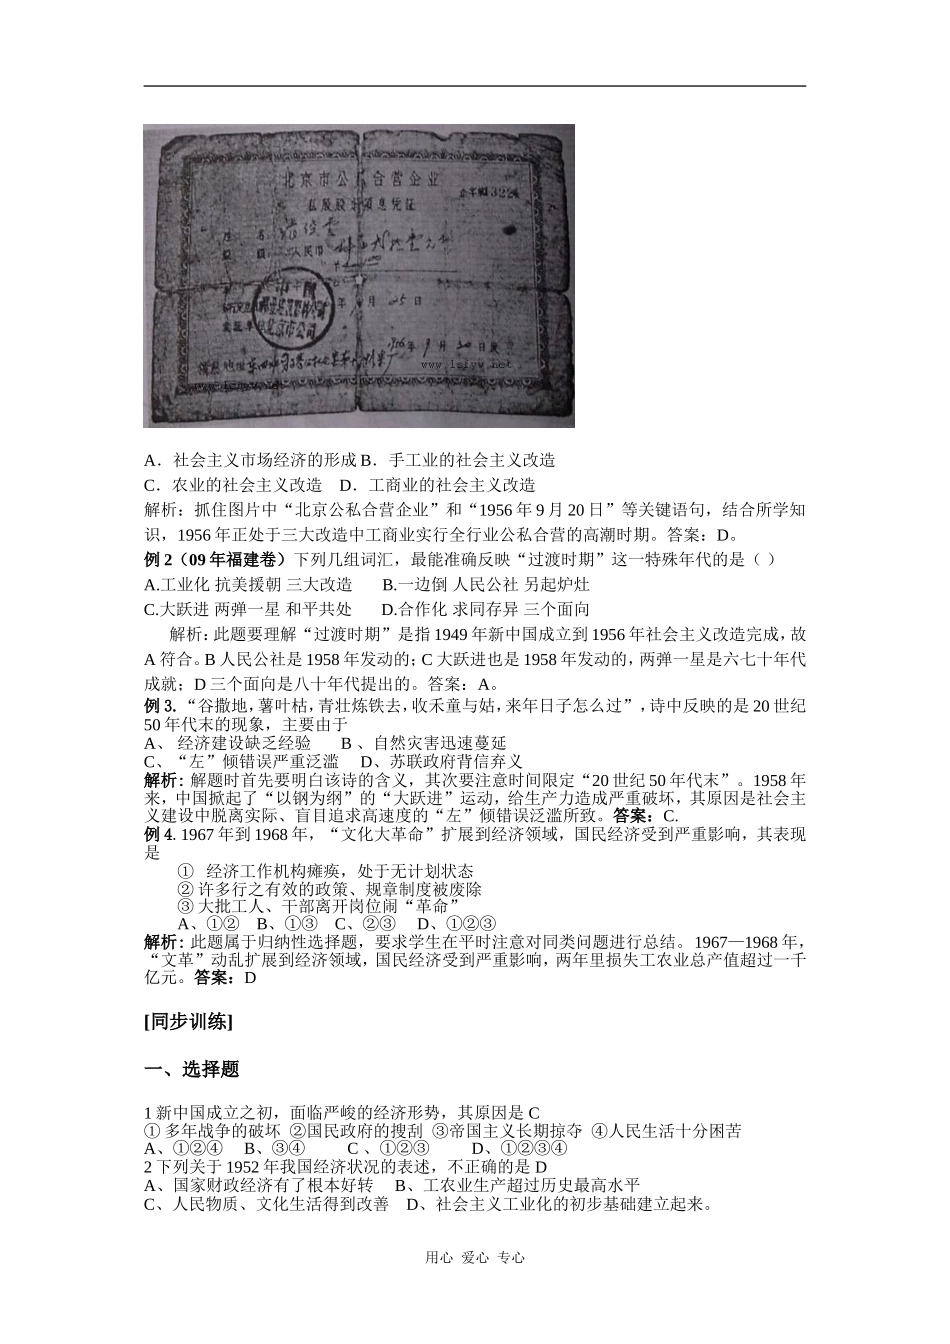 北京市公私合营企业
私股股东领息凭证
人民币
年 月 25 日
北京市公司
1956年 9 月 20 日
www.lsfyw.net
A．社会主义市场经济的形成 B．手工业的社会主义改造
C．农业的社会主义改造 D．工商业的社会主义改造
解析：抓住图片中“北京公私合营企业”和“1956 年 9 月 20 日”等关键语句，结合所学知
识，1956 年正处于三大改造中工商业实行全行业公私合营的高潮时期。答案：D。
例 2（09 年福建卷）下列几组词汇，最能准确反映“过渡时期”这一特殊年代的是（ ）
A.工业化 抗美援朝 三大改造 B.一边倒 人民公社 另起炉灶
C.大跃进 两弹一星 和平共处 D.合作化 求同存异 三个面向
解析：此题要理解“过渡时期”是指 1949 年新中国成立到 1956 年社会主义改造完成，故
A 符合。B 人民公社是 1958 年发动的；C 大跃进也是 1958 年发动的，两弹一星是六七十年代
成就；D 三个面向是八十年代提出的。答案：A。
例 3. “谷撒地，薯叶枯，青壮炼铁去，收禾童与姑，来年日子怎么过”，诗中反映的是 20 世纪
50 年代末的现象，主要由于
A、 经济建设缺乏经验 B 、自然灾害迅速蔓延
C、“左”倾错误严重泛滥 D、苏联政府背信弃义
解析: 解题时首先要明白该诗的含义，其次要注意时间限定“20 世纪 50 年代末”。1958 年
来，中国掀起了“以钢为纲”的“大跃进”运动，给生产力造成严重破坏，其原因是社会主
义建设中脱离实际、盲目追求高速度的“左”倾错误泛滥所致。答案：C.
例 4. 1967 年到 1968 年，“文化大革命”扩展到经济领域，国民经济受到严重影响，其表现
是
① 经济工作机构瘫痪，处于无计划状态
② 许多行之有效的政策、规章制度被废除
③ 大批工人、干部离开岗位闹“革命”
A、①② B、①③ C、②③ D、①②③
解析: 此题属于归纳性选择题，要求学生在平时注意对同类问题进行总结。1967—1968 年，
“文革”动乱扩展到经济领域，国民经济受到严重影响，两年里损失工农业总产值超过一千
亿元。答案：D
[同步训练]
一、选择题
1 新中国成立之初，面临严峻的经济形势，其原因是 C
① 多年战争的破坏 ②国民政府的搜刮 ③帝国主义长期掠夺 ④人民生活十分困苦
A、①②④ B、③④ C 、①②③ D、①②③④
2 下列关于 1952 年我国经济状况的表述，不正确的是 D
A、国家财政经济有了根本好转 B、工农业生产超过历史最高水平
C、人民物质、文化生活得到改善 D、社会主义工业化的初步基础建立起来。
用心 爱心 专心